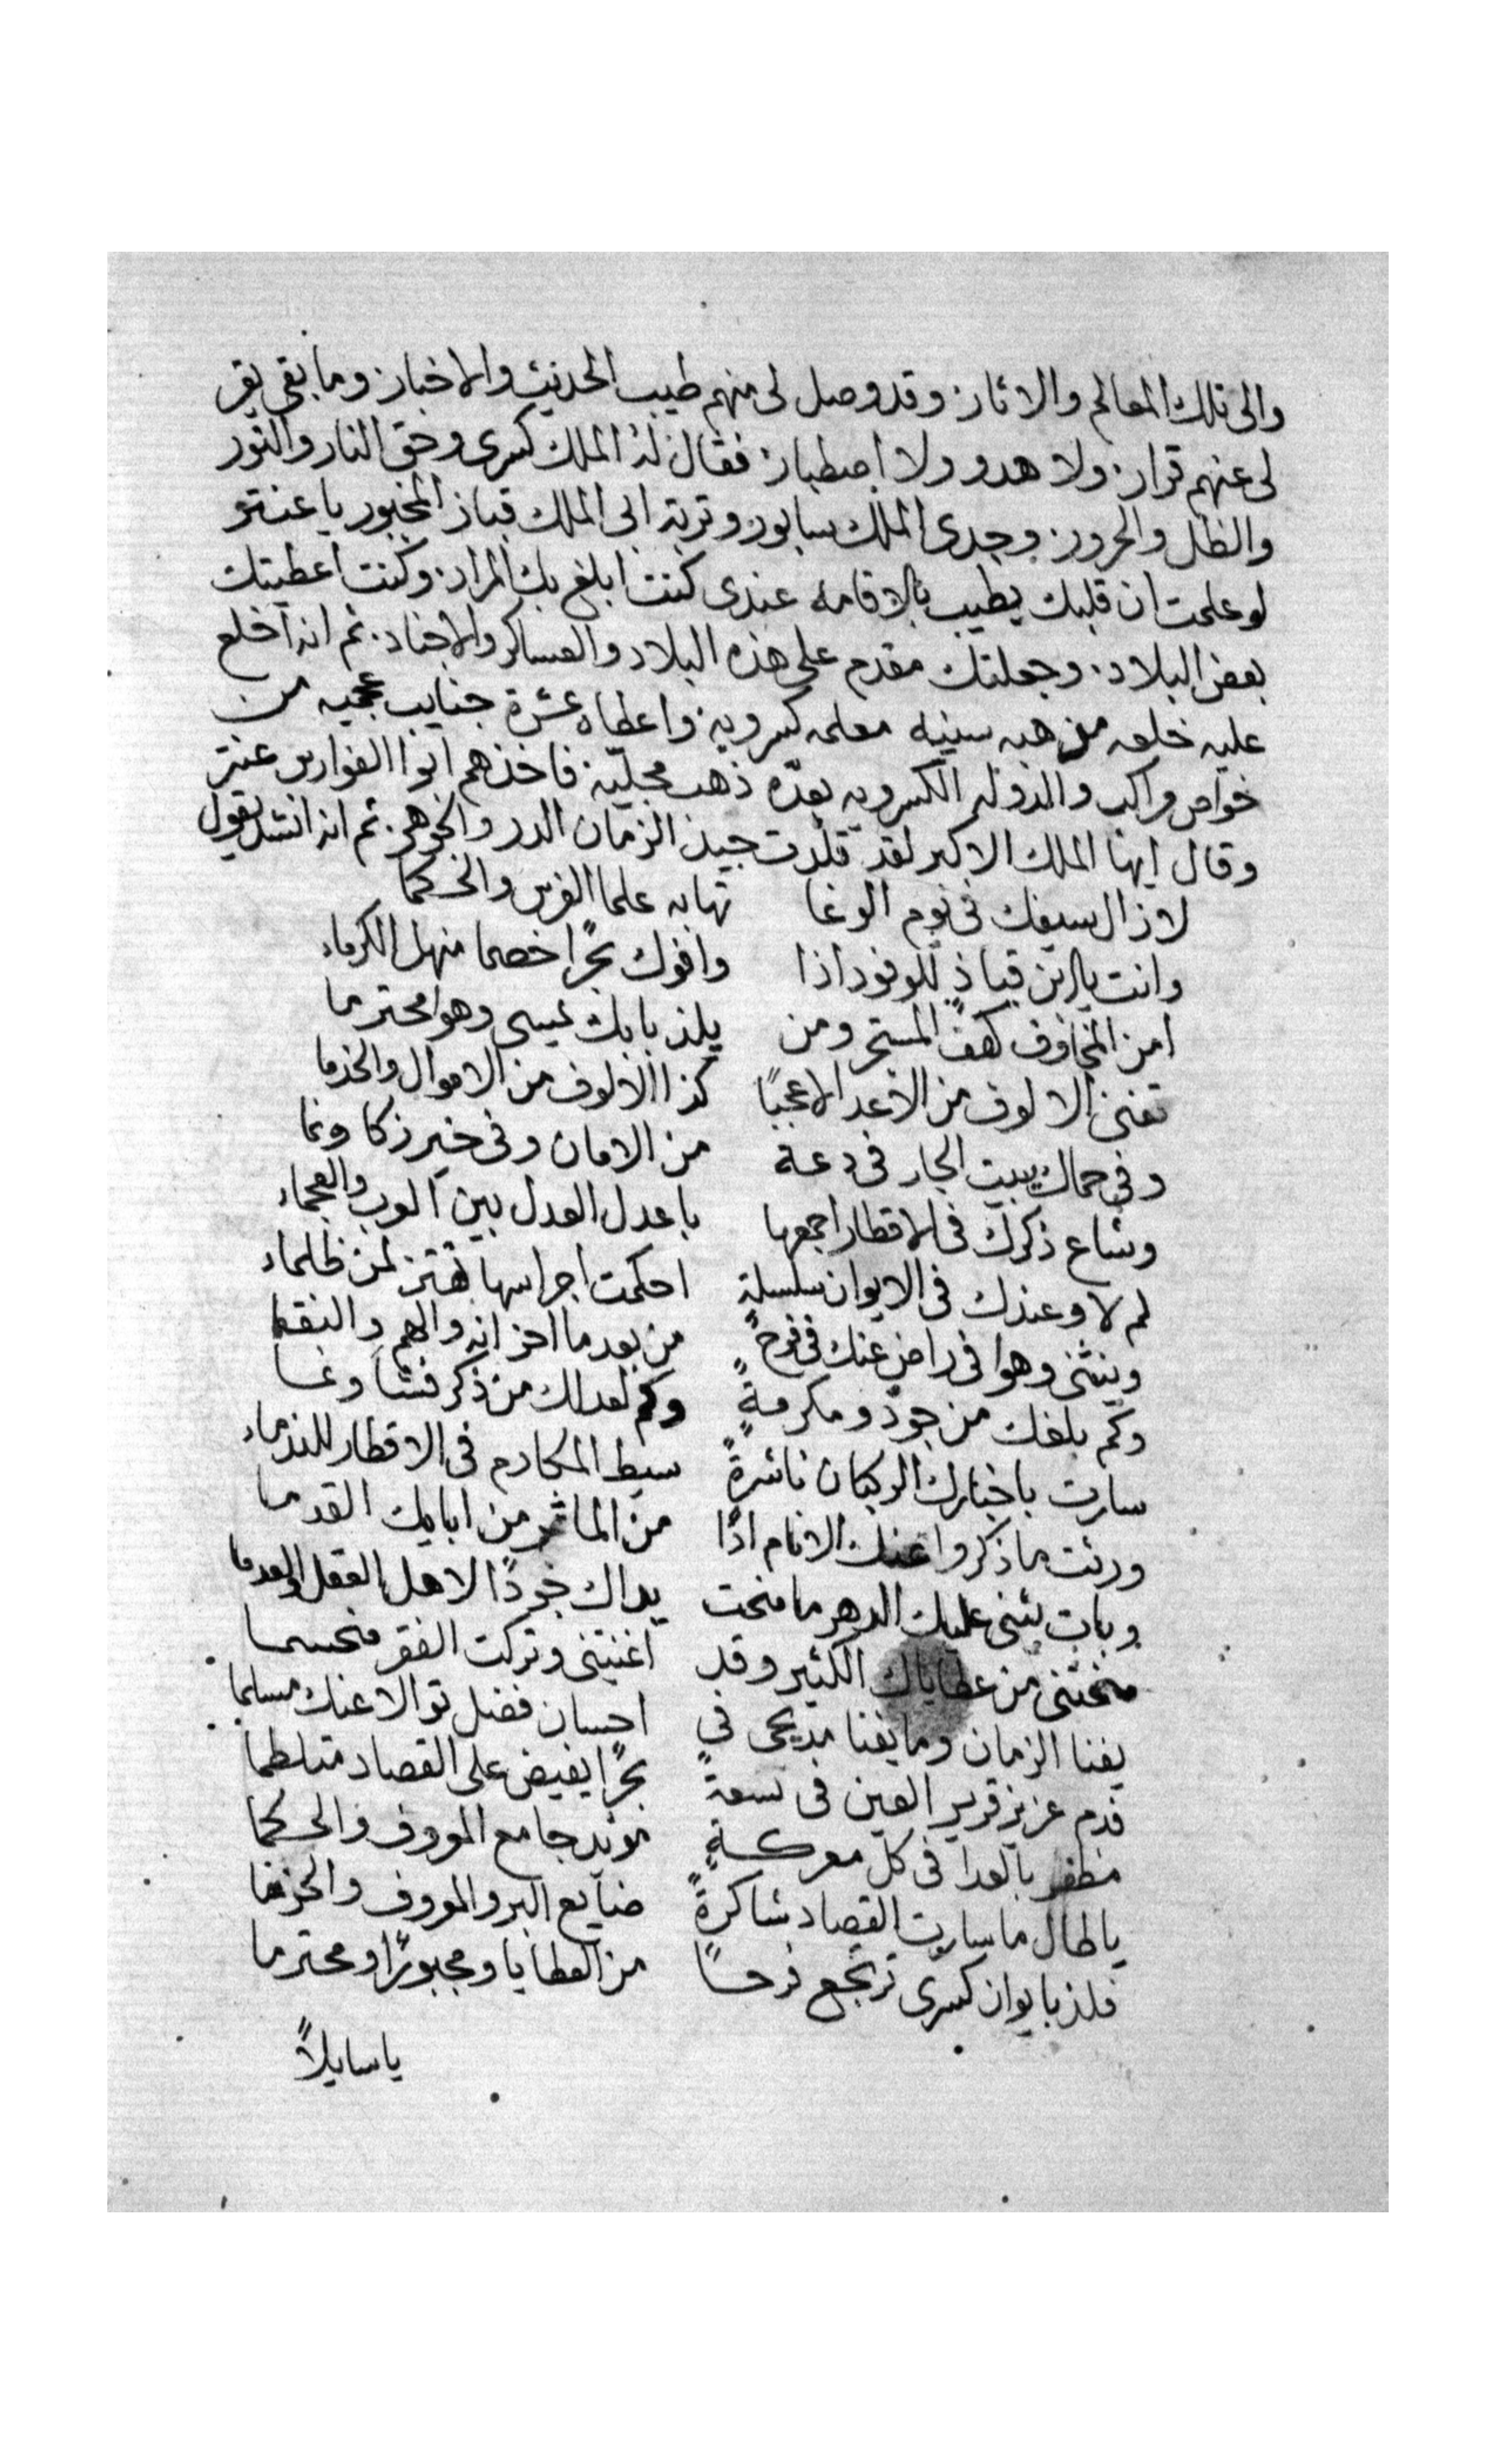 والى تلك المعالم والاثار. وقد وصل لى منهم طيب الحديث والاخبار. وما بقى يقر
لى عنهم قرار. ولا هدو ولا اصطبار. فقال له الملك كسرى وحق النار والنور
والظل والحرور. وجدى الملك سابور وتربة ابى الملك قباز المخبور يا عنتر
لو علمت ان قلبك يطيب بالاقامه عندى كنت ابلغ بك المراد. وكنت اعطيتك
بعض البلاد. وجعلتك مقدم على هذه البلاد والعساكر والاجناد. ثم انه اخلع
عليه خلعه سنيه معلمه كسرويه. واعطاه عشرة جنايب عجميه من
خواص مراكب والدوله الكسرويه بعدّه ذهب مجليّه. فاخذهم ابوا الفوارس عنتر
وقال ايها الملك الاكبر لقد قلّدت جيد الزمان الدرر والجوهر. ثم انه انشد يقول
لا زال سيفك فى يوم الوغا تهابه علما الفرس والحكما
وانت يا ابن قباذٍ للوفود اذا وافوك بحرًا خصما منهل الكرماء
امن المخاوف كهف المستجر ومن يلذ بابك يمسى وهوا محترما
تفنى الالوف من الاعدا لا عجبًا كذا الالوف من الاموال والخدما
وفى حماك يبيت الجار فى دعة من الامان وفى خير زكا ونما
وشاع ذكرك فى الاقطار اجمعها باعدل العدل بين العرب والعجماء
لم لا وعندك فى الايوان سلسلةٍ احكمت اجراسها تهتز لمن ظلماء
وينثنى وهوا فى راضٍ عنك فى فرحٍ من بعد ما احزانه والهم والنقما
وكم بلغك من جود ومكرمةٍ وكم لعدلك من ذكر فشا ونما
سارت باخبارك الركبان ناشرةً سيط المكارم فى الاقطار للندماء
ورثت ما ذكروا عنك الانام اذًا من الماثر من ابايك القدما
وبات يثنى عليك الدهر ما منحت يداك جودًا لاهل العقل والعدما
منحتنى من عطاياك الكثير وقد اغنيتنى وتركت الفقر منحسما
يفنا الزمان وما يفنا مديحى فى احسان فضل توالا عنك مسلما
فدم عزيز قرير العين فى سعةٍ بحرًا يفيض على القصاد متلطما
مظفر بالعدا فى كل معركـةٍ مويد جامع المعروف والحكما
يا طال ما سارت القصاد شاكرةً صنايع البر والمعروف
فلذ بايوان كسرى ترتجع فرحـًا من العطايا ومجبورًا ومحترما
يا سايلاً